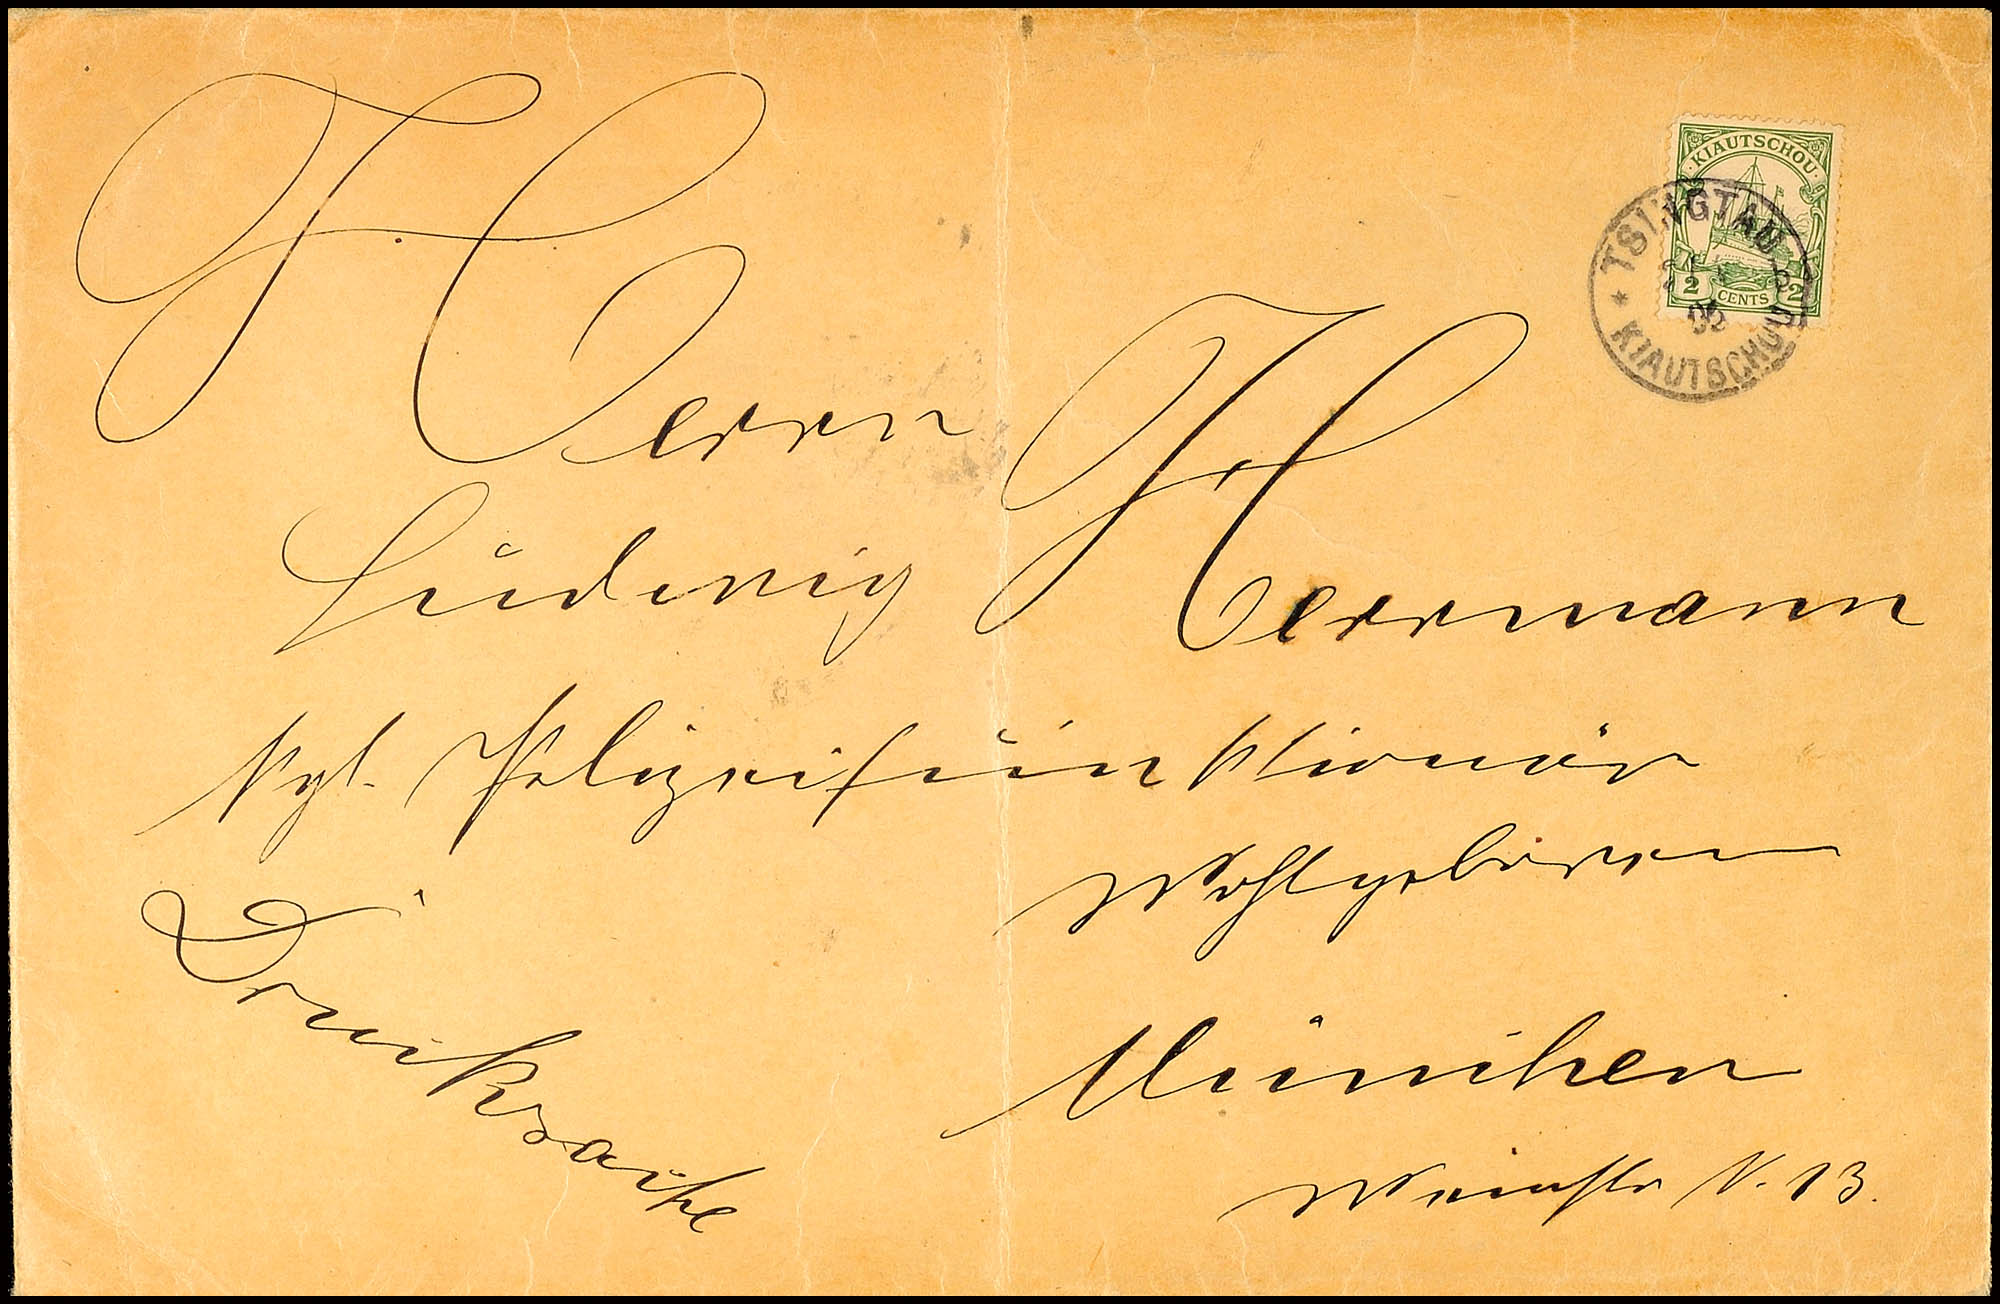 KIAUTSCHOU
2 CENTS 2
TSINGTAU
KIAUTSCHOU
Herrn
Ludwig Herrmann
Kgl. Polizeifunktionär
Wohlgeboren
München
Weinstr N. 13.
Drucksache